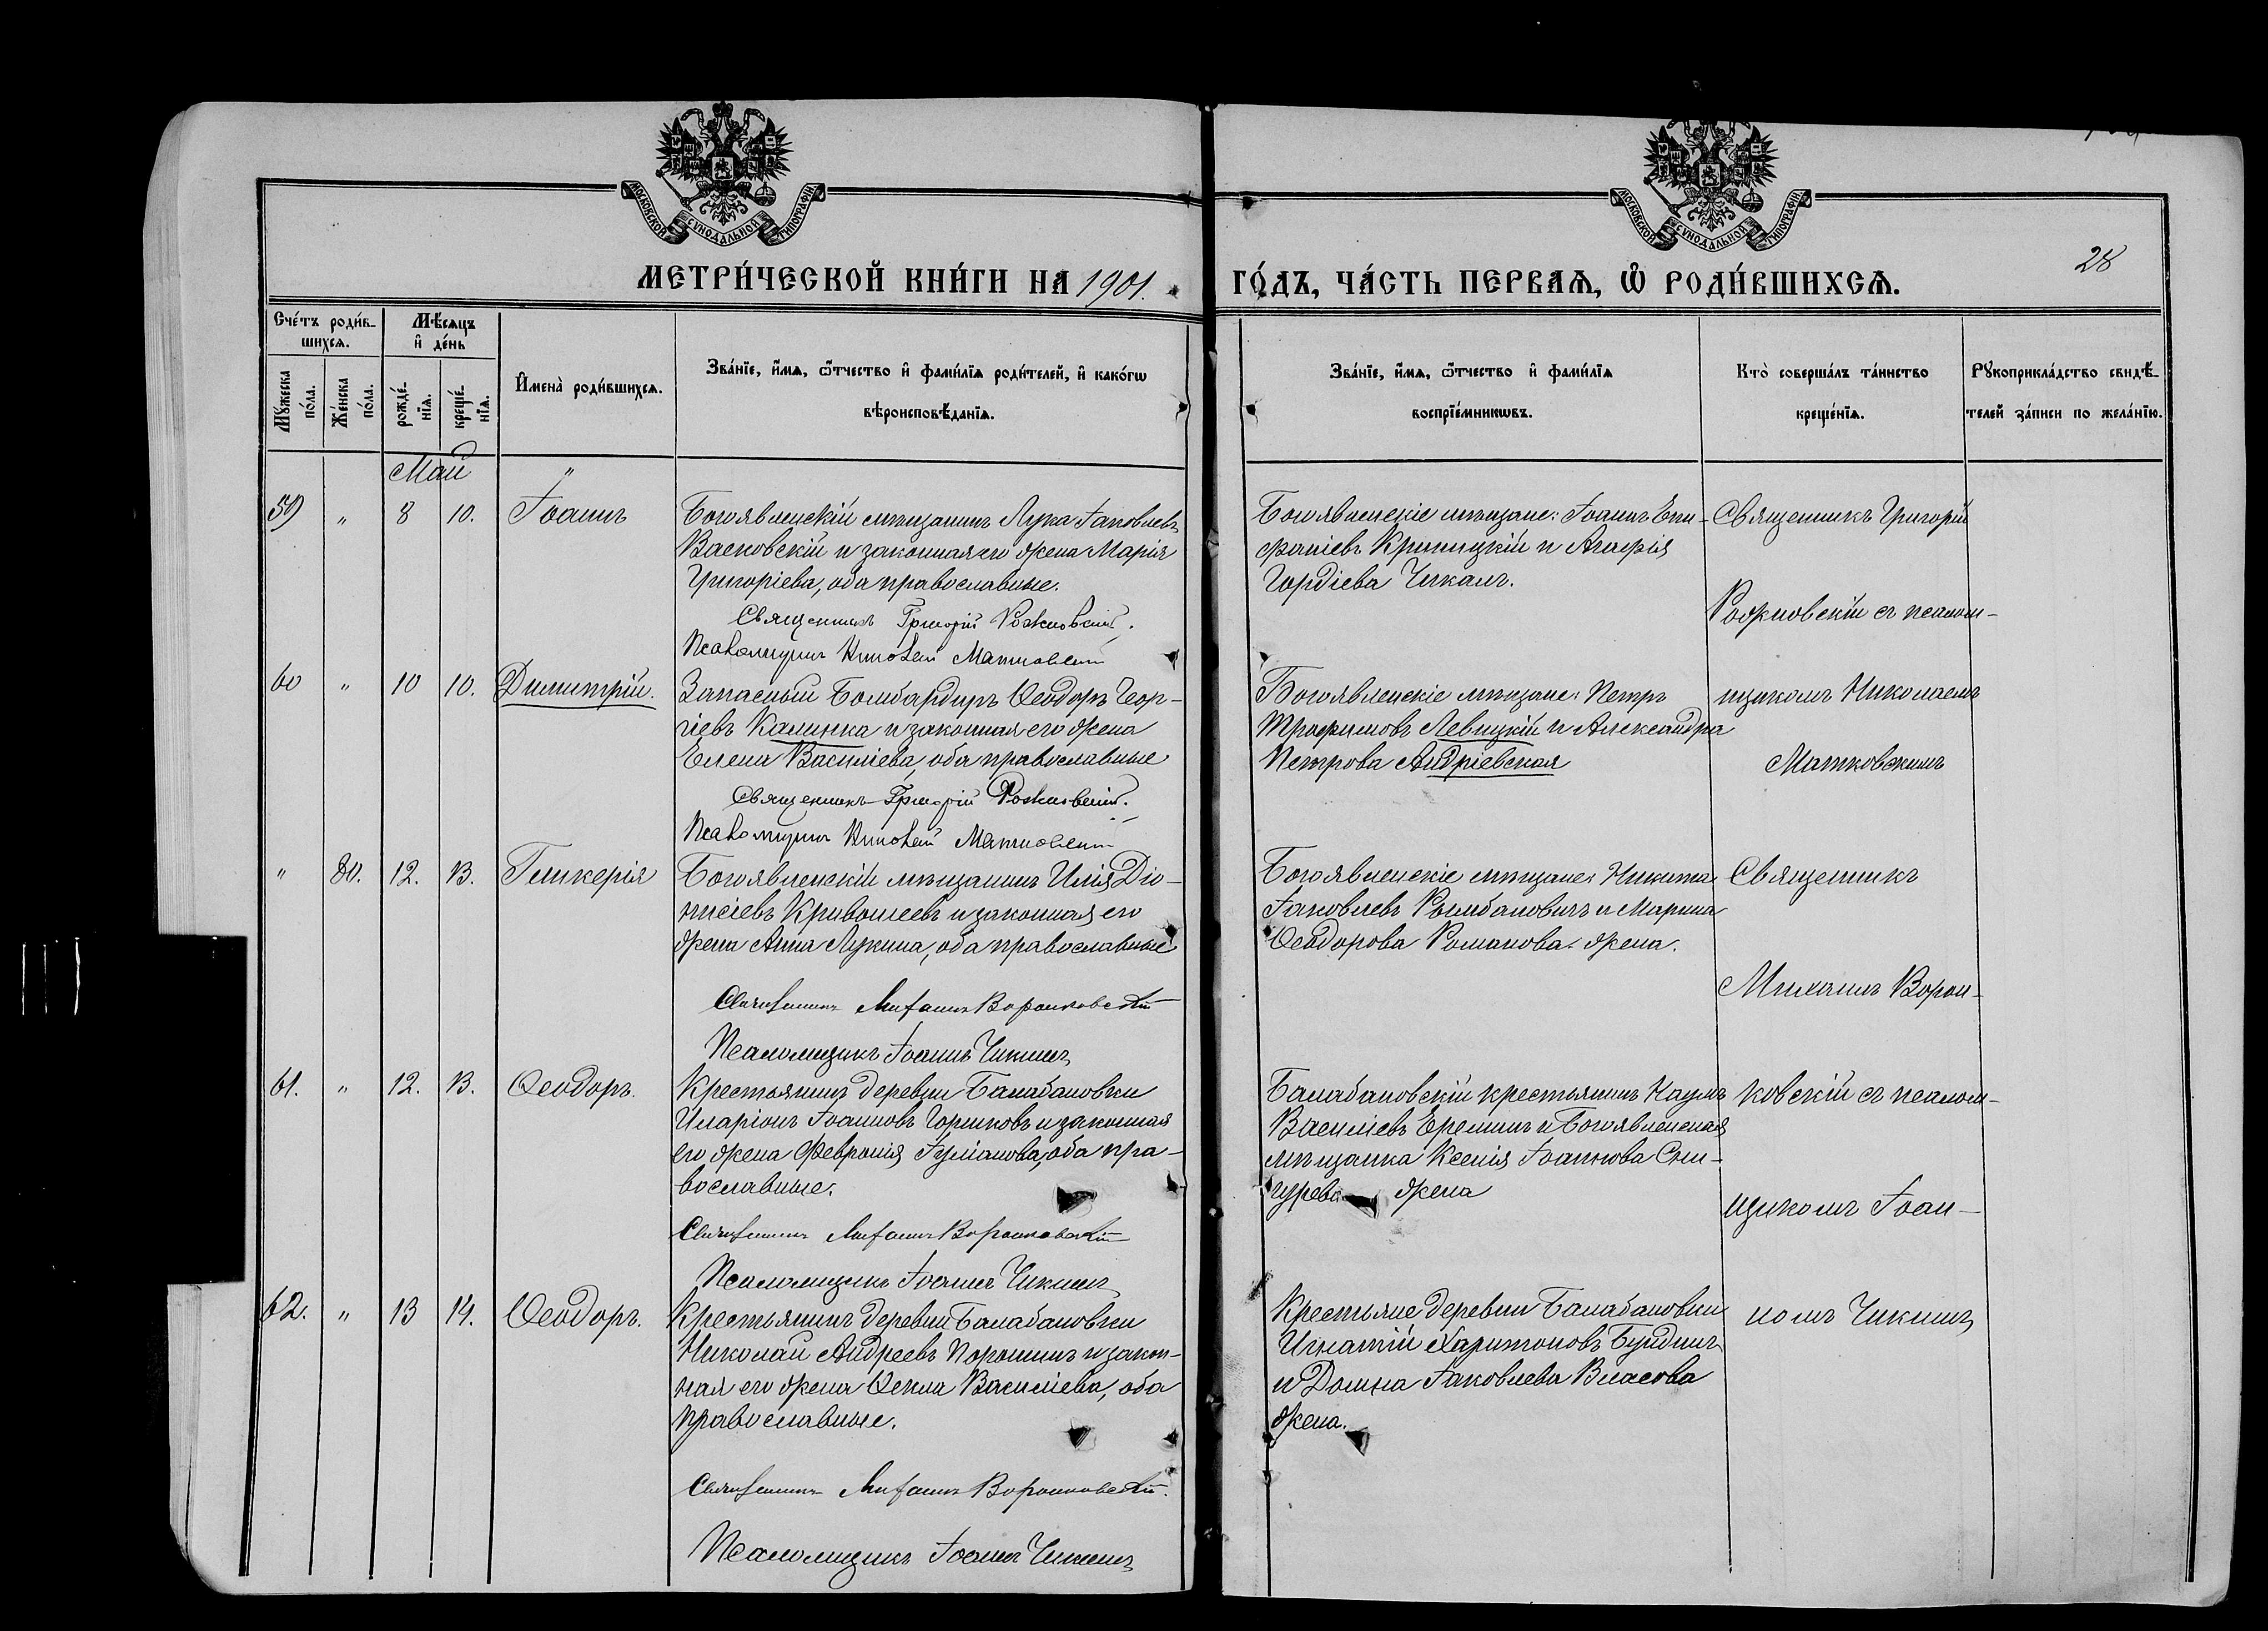 МОСКОВСКОЙ СѴНОДАЛЬНОЙ ТИПОГРАФІИ
МОСКОВСКОЙ СѴНОДАЛЬНОЙ ТИПОГРАФІИ
28
МЕТРИ́ЧЕСКОЙ КНИ́ГИ НА 1901. ГО́ДЪ, ЧА́СТЬ ПЕРВАѦ, Ѽ РОДИ́ВШИХСѦ.
Сче́тъ роди́в-
шихсѧ.
Мѣ́сѧцъ
и҆ де́нь
Мꙋ́жеска
по́ла.
Же́нска
по́ла.
рожде́-
нїѧ.
креще́-
нїѧ.
И҆мена̀ роди́вшихсѧ.
Зва́нїе, и҆́мѧ, ѻ҆́тчество и҆ фами́лїѧ роди́телей, и҆ како́гѡ
вѣроисповѣ́данїѧ.
Зва́нїе, и҆́мѧ, ѻ҆́тчество и҆ фами́лїѧ
воспрїе́мникѡвъ.
Кто̀ соверша́лъ та́инство
креще́нїѧ.
Рꙋкоприкла́дство свидѣ́-
телей за́писи по жела́нїю.
Май "
59 " 8 10. Іоаннъ
Богоявленскій мѣщанинъ Лука Іаковлевъ
Васковскій и законная его жена Марія
Григоріева, оба православные.
Священникъ Григорій Рожновскій.
Псаломщикъ Николай Матковскій
Богоявленскіе мѣщане: Іоаннъ Епи-
фаніевъ Криницкій и Агафія
Гордіева Чикалъ.
Священникъ Григорій
Рожновскій съ псалом-
60 " 10 10. Димитрій.
Запасный Бомбардиръ Ѳеодоръ Геор-
гіевъ Калинка и законная его жена
Елена Василіева, оба православные
Священникъ Григорій Рожновскій.
Псаломщикъ Николай Матковскій
Богоявленскіе мѣщане: Петръ
Трофимовъ Левицкій и Александра
Петрова Андріевская
щикомъ Николаемъ
Матковскимъ
" 30. 12. 13. Гликерія
Богоявленскій мѣщанинъ Илія Діо-
нисіевъ Кривошеевъ и законная его
жена Анна Лукина, оба православные
Священникъ Михаилъ Воронковскій
Псаломщикъ Іоаннъ Чикинъ
Богоявленскіе мѣщане: Никита
Іаковлевъ Рымбаловичъ и Марина
Ѳеодорова Романова жена.
Священникъ
Михаилъ Ворон-
61. " 12. 13. Ѳеодоръ.
Крестьянинъ деревни Балабановки
Иларіонъ Іоанновъ Горшковъ и законная
его жена Февронія Іуліанова, оба пра-
вославные.
Священникъ Михаилъ Воронковскій
Псаломщикъ Іоаннъ Чикинъ
Балабановскій крестьянинъ Наумъ
Василіевъ Ереминъ и Богоявленская
мѣщанка Ксенія Іоаннова Сни-
гурева жена
ковскій съ псалом-
щикомъ Іоан-
62. " 13 14. Ѳеодоръ.
Крестьянинъ деревни Балабановки
Николай Андреевъ Порошинъ и закон-
ная его жена Ѳекла Василіева, оба
православные.
Священникъ Михаилъ Воронковскій.
Псаломщикъ Іоаннъ Чикинъ
Крестьяне деревни Балабановки
Игнатій Харитоновъ Бундинъ
и Домна Іаковлева Власова
жена.
номъ Чикинъ